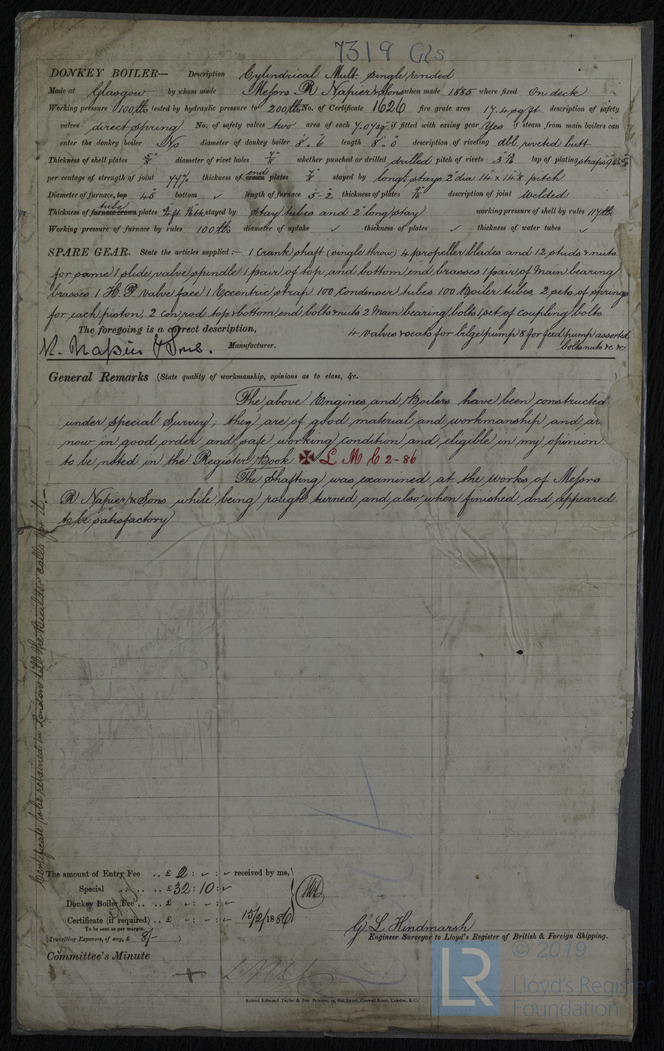 7319 Gls
DONKEY BOILER— Description Cylindrical Mult. Single ended
Made at Glasgow by whom made Messrs R Napier & Sons when made 1885 where fixed On deck
Working pressure 100 lbs tested by hydraulic pressure to 200 lbs No. of Certificate 1626 fire grate area 17.4 sq ft description of safety
valves direct spring No. of safety valves two area of each 7.07 sq" if fitted with easing gear Yes if steam from main boilers can
enter the donkey boiler No diameter of donkey boiler 8'-6" length 8'-0" description of riveting dbl rivetd butt
Thickness of shell plates diameter of rivet holes whether punched or drilled drilled pitch of rivets lap of plating straps
per centage of strength of joint 77% thickness of end plates stayed by long stays 2" dia 14" x 14" pitch
Diameter of furnace, top 45" bottom ✓ length of furnace 5-2 thickness of plates description of joint Welded
Thickness of furnace crown tube plates stayed by stay tubes and 2 long stay working pressure of shell by rules 117 lbs
Working pressure of furnace by rules 100 lbs diameter of uptake ✓ thickness of plates ✓ thickness of water tubes ✓
SPARE GEAR. State the articles supplied:— 1 Crank shaft (single throw) 4 propeller blades and 12 studs & nuts
for same 1 slide valve spindle 1 pair of top and bottom end brasses 1 pair of Main bearing
brasses 1 H.P. valve face 1 Eccentric strap 100 Condenser tubes 100 Boiler tubes 2 sets of springs
for each piston, 2 con rod top & bottom end bolts & nuts 2 Main bearing bolts 1 set of coupling bolts
The foregoing is a correct description, 4 valves & seats for bilge pump & 8 for feed pump assorted
R. Napier & Sons. Manufacturer. bolts nuts &c &c
General Remarks (State quality of workmanship, opinions as to class, &c.
The above Engines and Boilers have been constructed
under special Survey, they are of good material and workmanship and are
now in good order and safe working condition and eligible in my opinion
to be noted in the Register Book ✠ L M C 2-86
The Shafting was examined at the works of Messrs
R Napier & Sons while being rough turned and also when finished and appeared
to be satisfactory
Certificate to be retained in London till the Builder calls for it.
The amount of Entry Fee .. £ 2 : ✓ : ✓ received by me,
Special .. .. £ 32 : 10 : ✓
Donkey Boiler Fee .. £ ✓ : ✓ : ✓
Certificate (if required) .. £ ✓ : ✓ : ✓ 15/2/1886
To be sent as per margin.
(Travelling Expenses, if any, £ 8/- )
G L Hindmarsh
Engineer Surveyor to Lloyd's Register of British & Foreign Shipping.
Committee's Minute
© 2019
LR
Lloyd's Register
Foundation